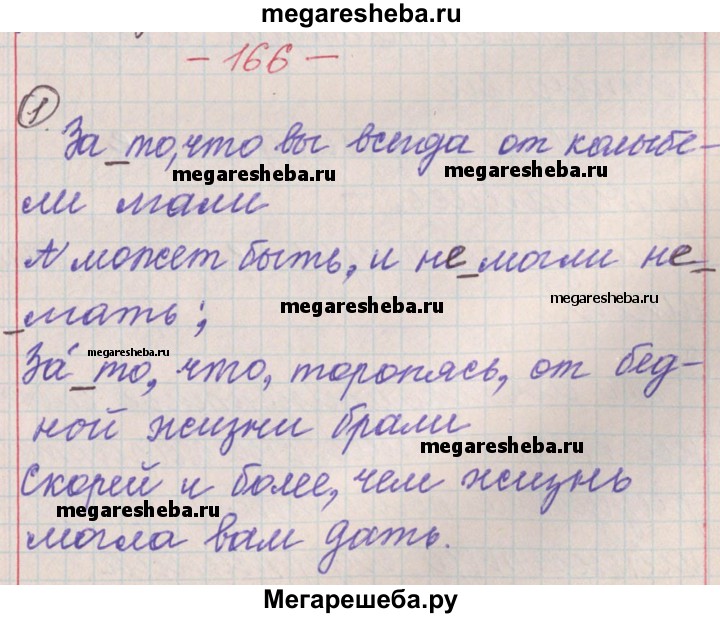 megaresheba.ru
- 166 -
1
За то, что вы всегда от колыбе-
megaresheba.ru megaresheba.ru
ли лгали
А может быть, и не могли не
megaresheba.ru megaresheba.ru
лгать;
megaresheba.ru
За́ то, что, торопясь, от бед-
ной жизни брали
megaresheba.ru
Скорей и более, чем жизнь
megaresheba.ru
могла вам дать.
Мегарешеба.ру